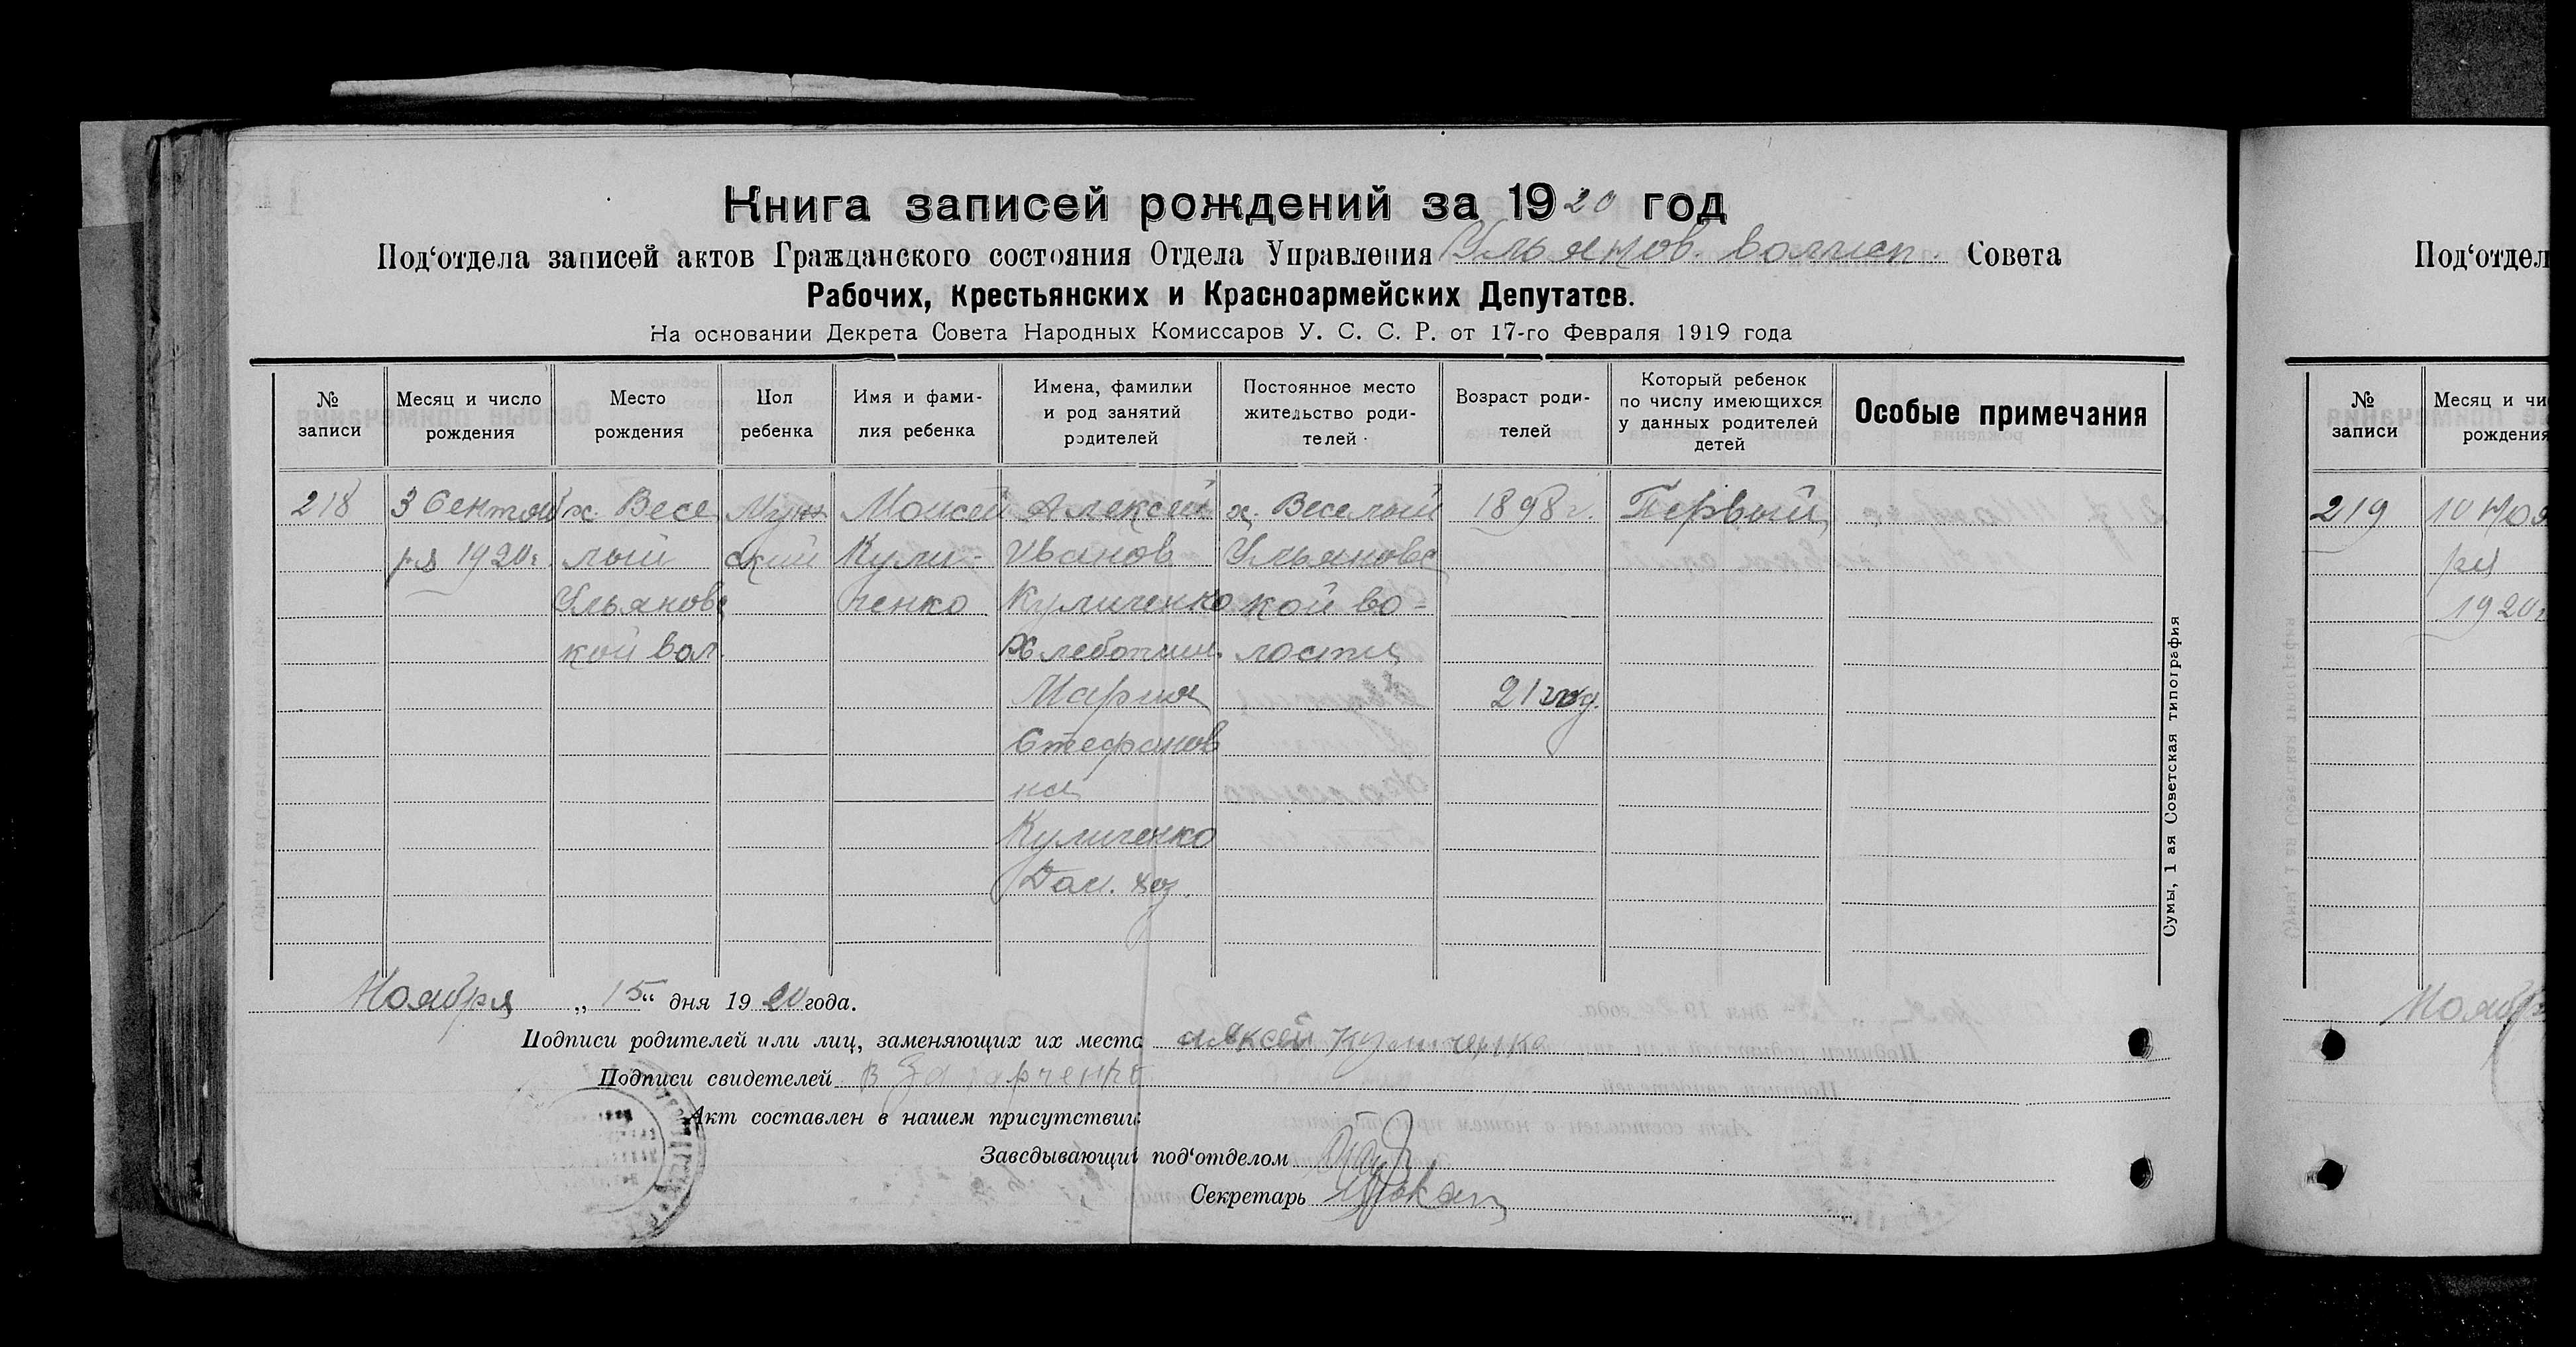 Книга записей рождений за 1920 год
Под‘отдела записей актов Гражданского состояния Отдела Управления Ульянов. Совета
Рабочих, Крестьянских и Красноармейских Депутатов.
На основании Декрета Совета Народных Комиссаров У. С. С. Р. от 17-го Февраля 1919 года
№
записи
Месяц и число
рождения
Место
рождения
Пол
ребенка
Имя и фами-
лия ребенка
Имена, фамилии
и род занятий
родителей
Постоянное место
жительство роди-
телей
Возраст роди-
телей
Который ребенок
по числу имеющихся
у данных родителей
детей
Особые примечания
218
3 Сентяб
ря 1920г.
х. Весе
лый
Ульяновс
кой вол.
Муж
ской
Моисей
Кули-
ченко
Алексей
Иванов
Куличенко
Хлебопаш.
Мария
Стефанов
на
Куличенко
Дом. хоз.
х. Веселый
Ульяновс
кой во-
лости
1898 г.
21 год.
Первый
Ноября „ 15 “ дня 1920 года.
Подписи родителей или лиц, заменяющих их места Алексей Куличенко
Подписи свидетелей В
Акт составлен в нашем присутствии:
Заведывающий под‘отделом
Секретарь
Сумы, 1 ая Советская типография
Под‘отдел
№
записи
Месяц и чи
рождения
219
10 Нояб
ря
1920г
Ноябр